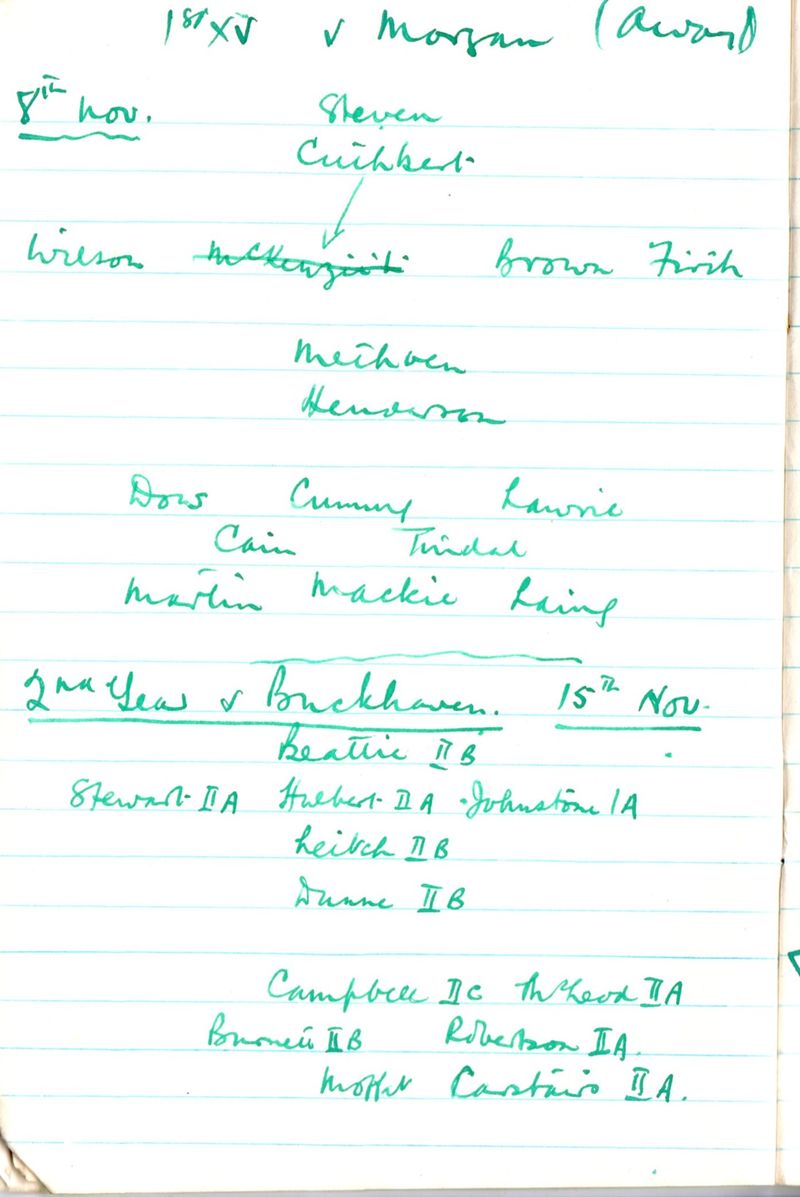 1st XV v Morgan (Away)
8th Nov.
Steven
Cuthbert
Wilson McKenzie Brown Firth
Methven
Henderson
Dow Cumming Lawrie
Cain Tindal
Martin Mackie Laing
2nd Year v Buckhaven. 15th Nov.
Beattie IIB
Stewart IIA Hulbert IIA Johnstone 1A
Leitch IIB
Dunne IIB
Campbell IIC McLeod IIA
Burnett IIB Robertson IIA.
Moffat Carstairs IIA.